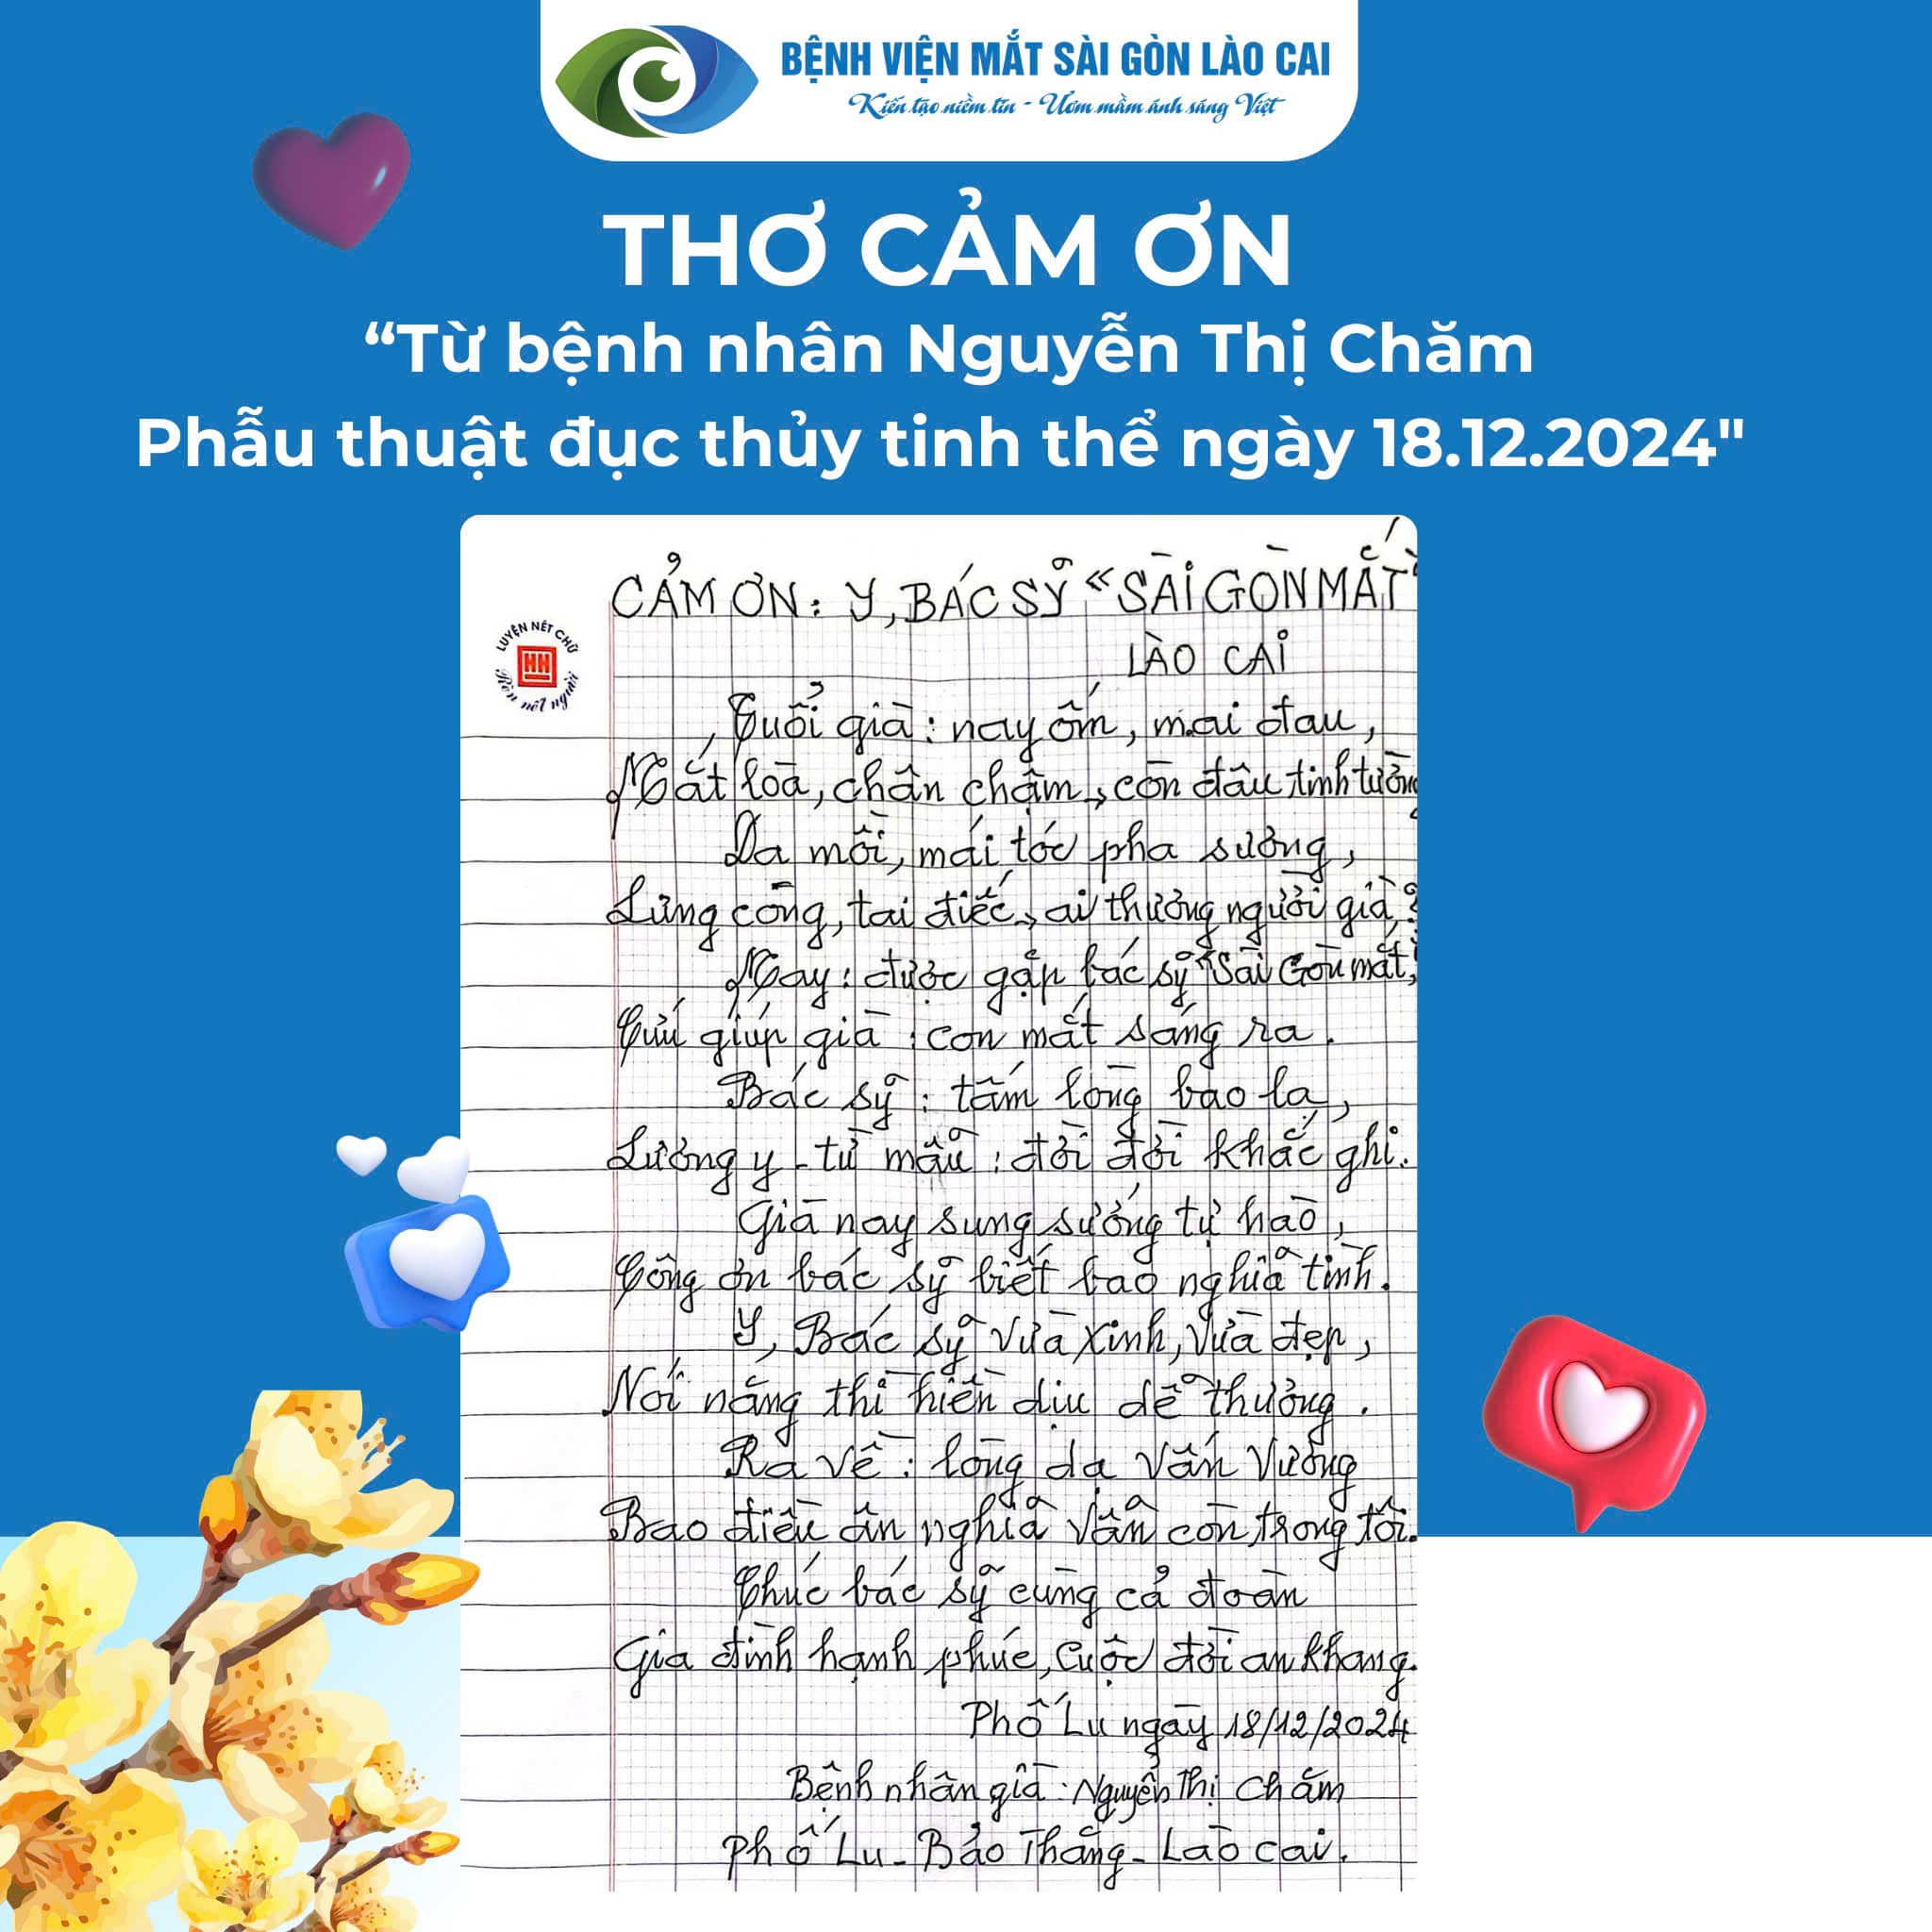 BỆNH VIỆN MẮT SÀI GÒN LÀO CAI
Kiến tạo niềm tin - Ươm mầm ánh sáng Việt
THƠ CẢM ƠN
“Từ bệnh nhân Nguyễn Thị Chăm
Phẫu thuật đục thủy tinh thể ngày 18.12.2024"
CẢM ƠN: Y, BÁC SỸ “SÀI GÒN MẮT”
LÀO CAI
LUYỆN NÉT CHỮ
HH
Rèn nết người
Tuổi già: nay ốm, mai đau,
Mắt loà, chân chậm, còn đâu tinh tường
Da mồi, mái tóc pha sương,
Lưng còng, tai điếc, ai thương người già?
May: được gặp bác sỹ “Sài Gòn mắt”,
Cứu giúp già: con mắt sáng ra.
Bác sỹ: tấm lòng bao la,
Lương y - từ mẫu: đời đời khắc ghi.
Già nay sung sướng tự hào,
Công ơn bác sỹ biết bao nghĩa tình.
Y, Bác sỹ vừa xinh, vừa đẹp,
Nói năng thì hiền dịu dễ thương.
Ra về: lòng dạ vấn vương
Bao điều ân nghĩa vẫn còn trong tôi.
Chúc bác sỹ cùng cả đoàn
Gia đình hạnh phúc, cuộc đời an khang.
Phố Lu ngày 18/12/2024
Bệnh nhân già: Nguyễn Thị Chăm
Phố Lu - Bảo Thắng - Lào Cai.